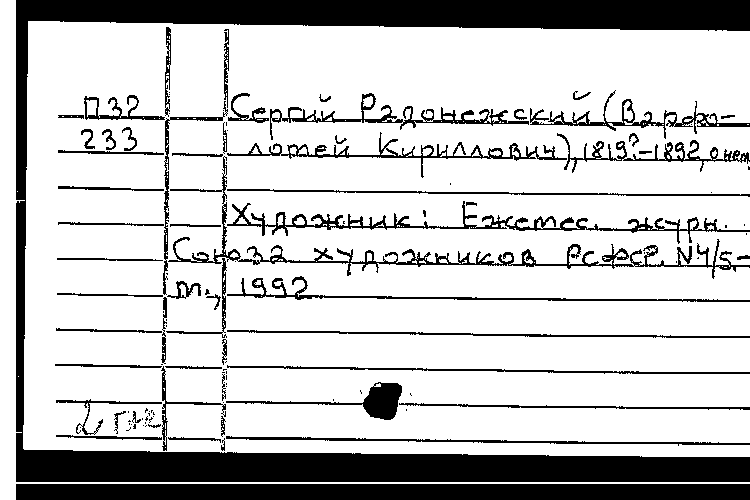 П32
233
Сергий Радонежский (Варфо-
ломей Кириллович), 1819?-1892, о нем
Художник: Ежемес. журн.
Союза художников РСФСР. N4/5.-
м., 1992
2